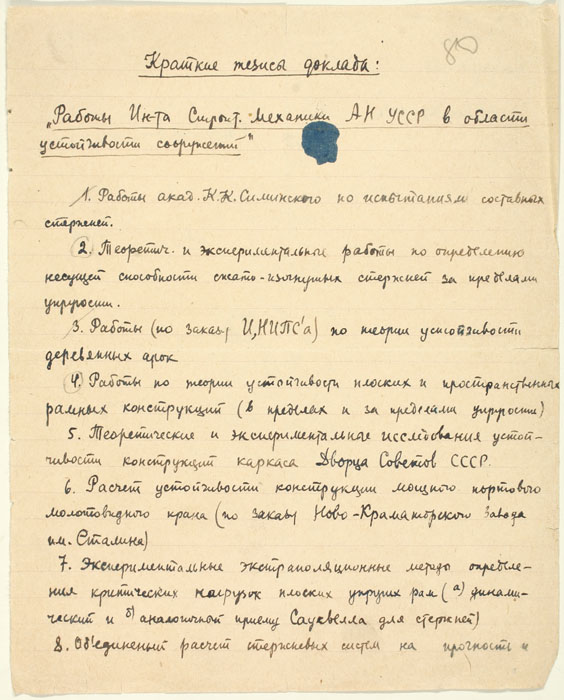 80
Краткие тезисы доклада:
„Работы Ин-та Строит. Механики АН УССР в области
устойчивости сооружений"
1. Работы акад. К.К. Симинского по испытаниям составных
стержней.
2. Теоретич. и экспериментальные работы по определению
несущей способности сжато-изогнутых стержней за пределами
упругости.
3. Работы (по заказу ЦНИПС'а) по теории устойчивости
деревянных арок
4. Работы по теории устойчивости плоских и пространственных
рамных конструкций (в пределах и за пределами упругости)
5. Теоретические и экспериментальные исследования устой-
чивости конструкций каркаса Дворца Советов СССР.
6. Расчет устойчивости конструкции мощного портового
молотовидного крана (по заказу Ново-Краматорского завода
им. Сталина)
7. Экспериментальные экстраполяционные методы определе-
ния критических нагрузок плоских упругих рам (а) динами-
ческий и б) аналогичный приему Саусвелла для стержней)
8. Об'единенный расчет стержневых систем на прочность и